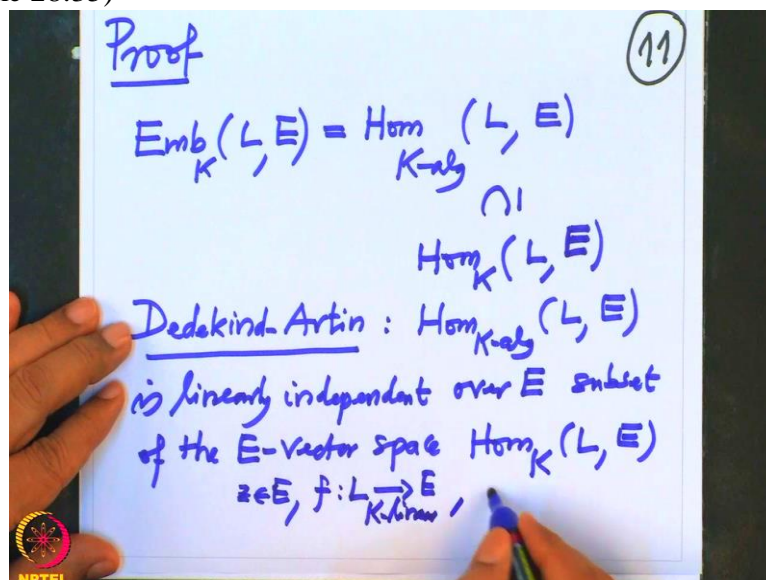 Proof
11
Emb_K (L, E) = Hom_{K-alg} (L, E)
∩|
Hom_K (L, E)
Dedekind-Artin : Hom_{K-alg} (L, E)
is linearly independent over E subset
of the E-vector space Hom_K (L, E)
z∈E, f : L → E ,
K-linear
NPTEL